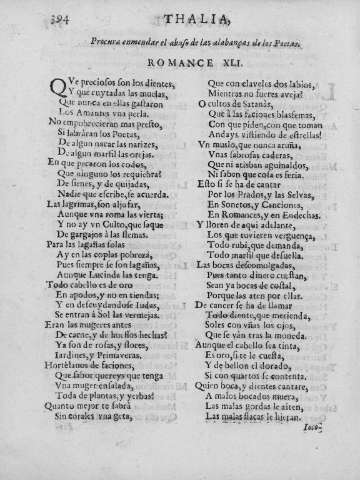 394 THALIA,
Procura enmendar el abuso de las alabanças de los Poetas.
ROMANCE XLI.
QVe preciosos son los dientes,
Y que cuytadas las muelas,
Que nunca en ellas gastaron
Los Amantes vna perla.
No empobrecieran mas presto,
Si labràran los Poetas,
De algun nacar las narizes,
De algun marfil las orejas.
En que pecaron los codos,
Que ninguno los requiebra?
De sienes, y de quijadas,
Nadie que escribe, se acuerda.
Las lagrimas son aljofar,
Aunque vna roma las vierta;
Y no ay vn Culto, que saque
De gargajos à las flemas.
Para las lagañas solas
Ay en las coplas pobreza,
Pues siempre se son lagañas,
Aunque Lucinda las tenga.
Todo cabello es de oro
En apodos, y no en tiendas;
Y en descuydandose Iudas,
Se entran à Sol las vermejas.
Eran las mugeres antes
De carne, y de huessos hechas?
Ya son de rosas, y flores,
Iardines, y Primaveras.
Hortelanos de faciones,
Que sabor quereys que tenga
Vna muger ensalada,
Toda de plantas, y yerbas?
Quanto mejor te sabrà
Sin corales vna geta,
Que con claveles dos labios,
Mientras no fueres aveja?
O cultos de Satanàs,
Que à las faciones blasfemas,
Con que piden, con que toman
Andays vistiendo de estrellas!
Vn muslo, que nunca aruña,
Vnas sabrosas caderas,
Que ni atisban aguinaldos,
Ni saben que cosa es feria.
Esto si se ha de cantar
Por los Prados, y las Selvas,
En Sonetos, y Canciones,
En Romances, y en Endechas.
Y lloren de aqui adelante,
Los que tuvieren verguença,
Todo rubi, que demanda,
Todo marfil que desuella.
Las bocas descomulgadas,
Pues tanto dinero cuestan,
Sean ya bocas de costal,
Porque las aten por ellas.
De cancer se ha de llamar
Todo diente, que merienda,
Soles con vñas los ojos,
Que se vàn tras la moneda.
Aunque el cabello sea tinta,
Es oro, si te le cuesta,
Y de bellon el dorado,
Si con quartos se contenta.
Quiro boca, y dientes cantare,
A malos bocados muera,
Las malas gordas le aiten,
Las malas flacas le hieran.